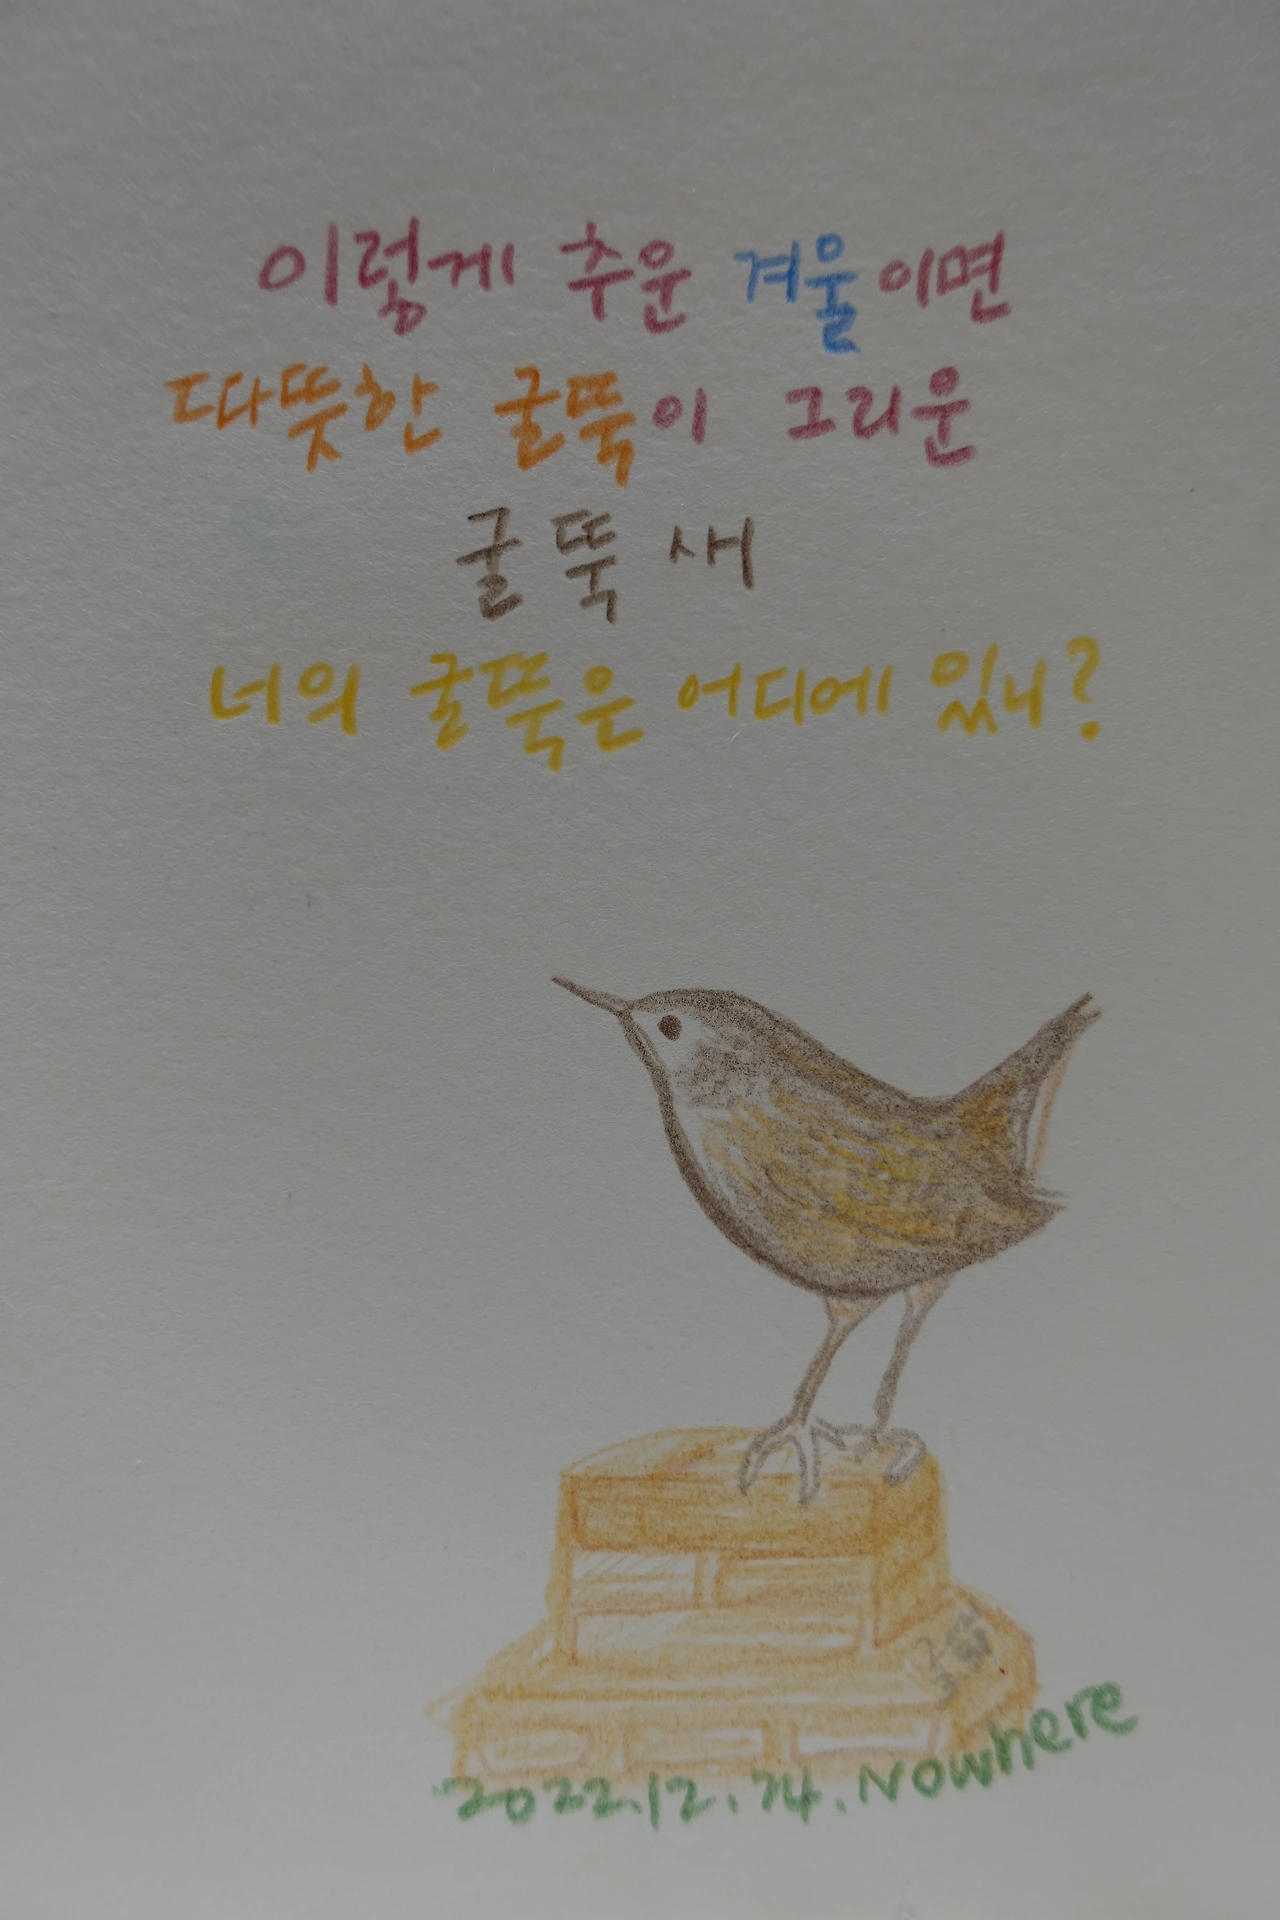 이렇게 추운 겨울이면
따뜻한 굴뚝이 그리운
굴뚝새
너의 굴뚝은 어디에 있니?
2022.12.24. Nowhere